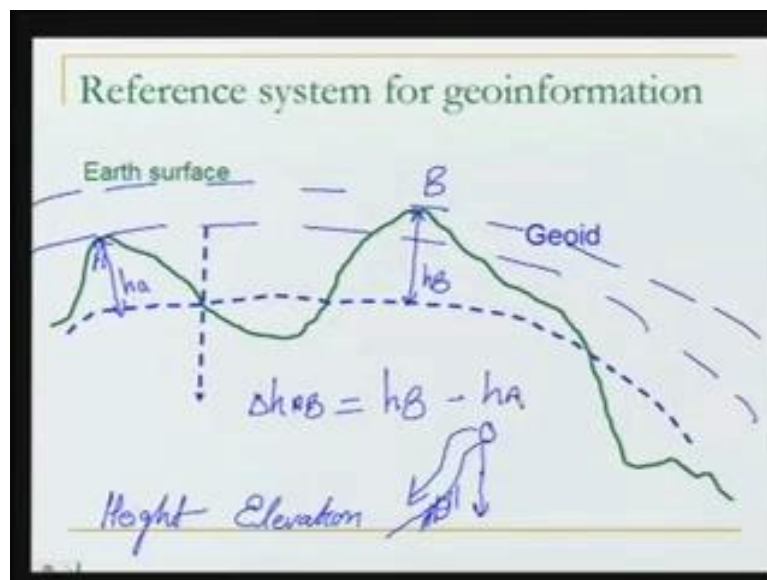 Reference system for geoinformation
Earth surface
B
Geoid
A
ha
hB
ΔhAB = hB - hA
Height Elevation